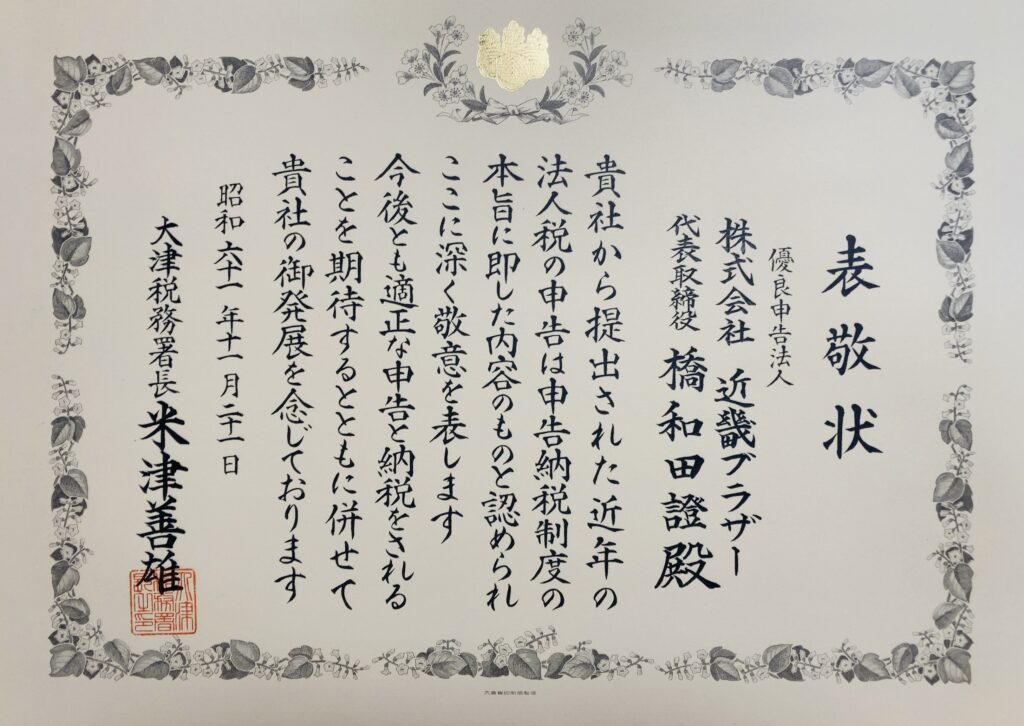 表敬状
優良申告法人
株式会社 近畿ブラザー
代表取締役 橋和田證殿
貴社から提出された近年の
法人税の申告は申告納税制度の
本旨に即した内容のものと認められ
ここに深く敬意を表します
今後とも適正な申告と納税をされる
ことを期待するとともに併せて
貴社の御発展を念じております
昭和六十一年十一月二十一日
大津税務署長 米津善雄
大津税務署長之印